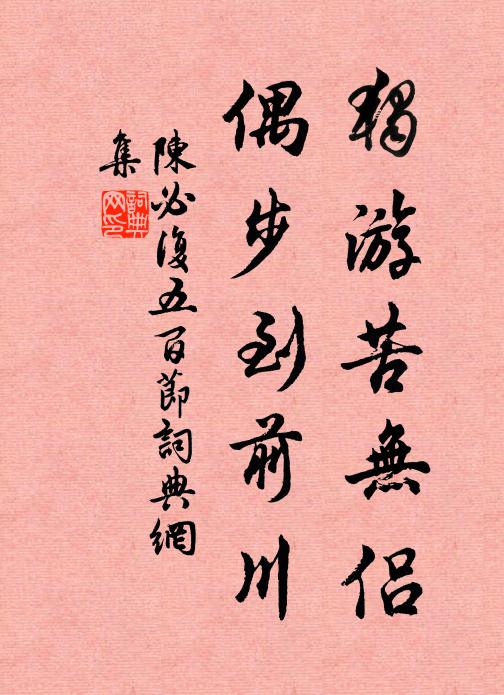 獨游苦無侶
偶步到前川
陳必復五百節詞典網
集
詞典網印